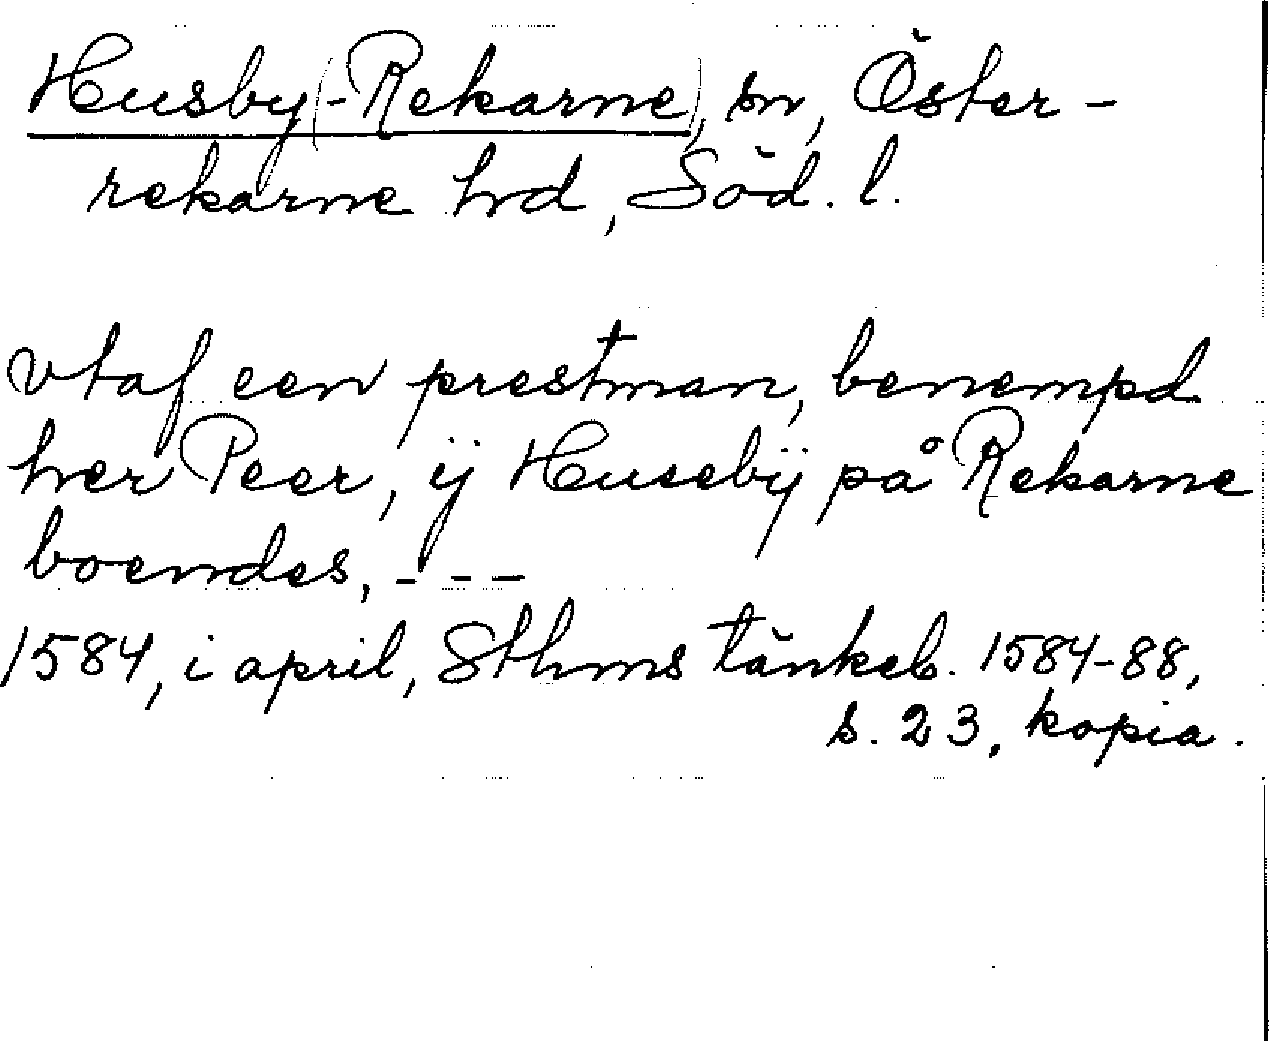 Husby(-Rekarne), sn, Öster-
rekarne hd, Söd. l.
vtaf een prestman, benempd
her Peer, ij Husebÿ på Rekarne
boendes, - - -
1584, i april, Sthms tänkeb. 1584-88,
s. 23, kopia.